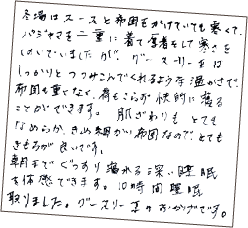 冬場はスースと布団をかけていても寒くて、
パジャマを二重に着て厚着をして寒さを
しのいでいましたが、グースリーは
しっかりとつつみこんでくれるような温かさで、
布団も重くなく、肩もこらず快的に寝る
ことができます。肌ざわりもとても
なめらか、きめ細かい布団なので、とても
きもちが良いです。
朝までぐっすり眠れる深い睡眠
を体感できます。10時間睡眠
取りました。グースリー 東のおかげです。